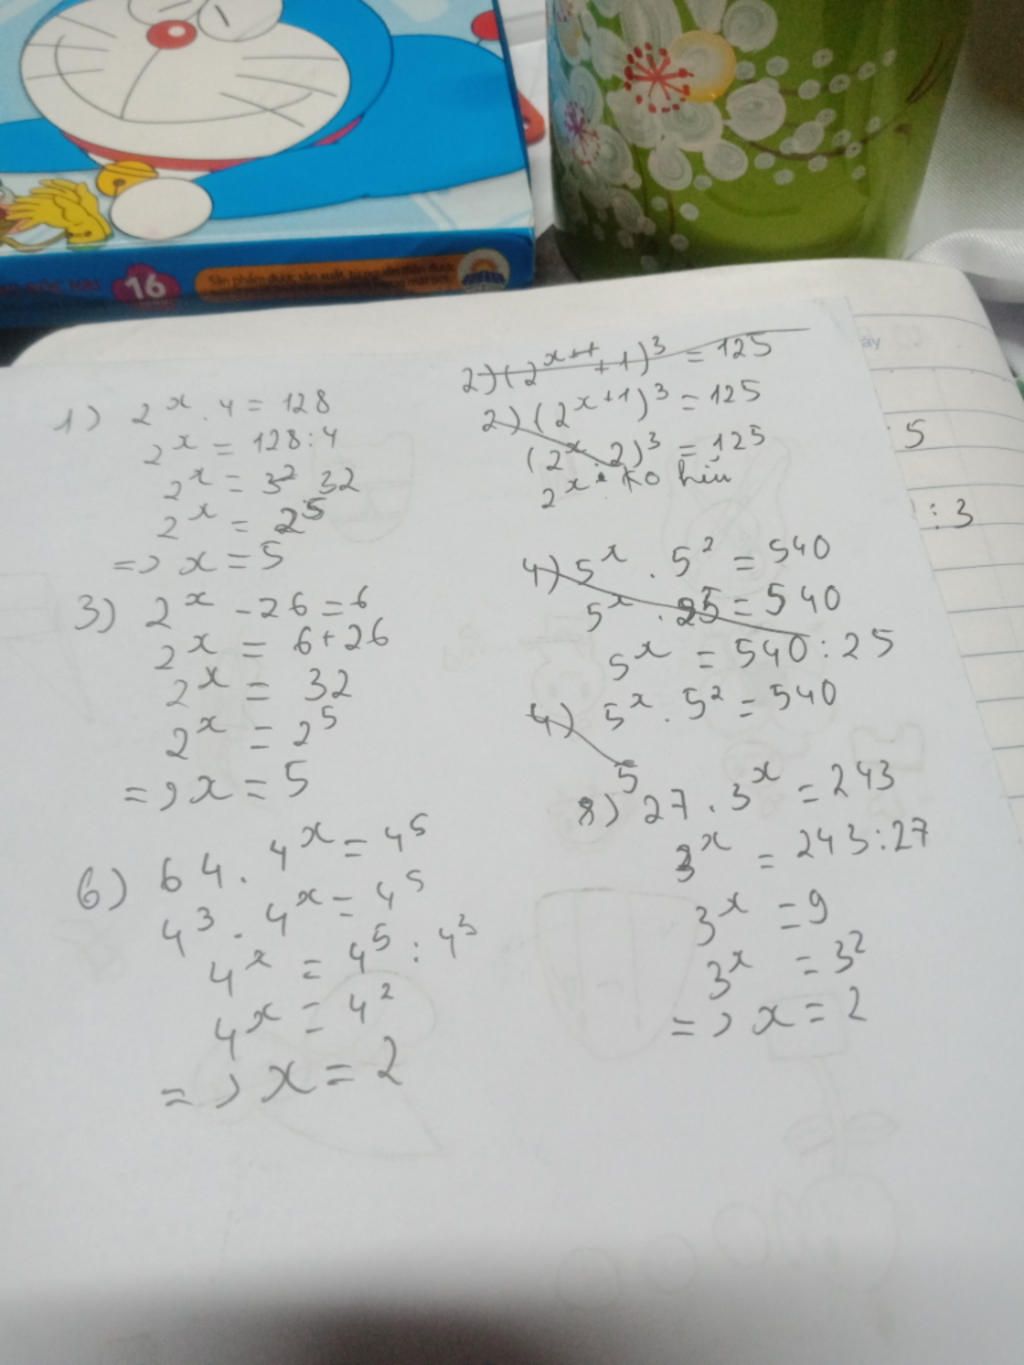 16
Sản phẩm được sản xuất từ
1) 2^x . 4 = 128
2^x = 128:4
2^x = 3^2 32
2^x = 2^5
=> x = 5
3) 2^x - 26 = 6
2^x = 6+26
2^x = 32
2^x = 2^5
=> x = 5
6) 64. 4^x = 4^5
4^3 . 4^x = 4^5
4^x = 4^5 : 4^3
4^x = 4^2
=> x = 2
2) (2^x+1 + 1)^3 = 125
2) (2^x+1)^3 = 125
(2^x . 2)^3 = 125
2^x . ko hiu
4) 5^x . 5^2 = 540
5^x . 25 = 540
5^x = 540 : 25
4) 5^x . 5^2 = 540
5
8) 27 . 3^x = 243
3^x = 243:27
3^x = 9
3^x = 3^2
=> x = 2
ày
: 5
: 3